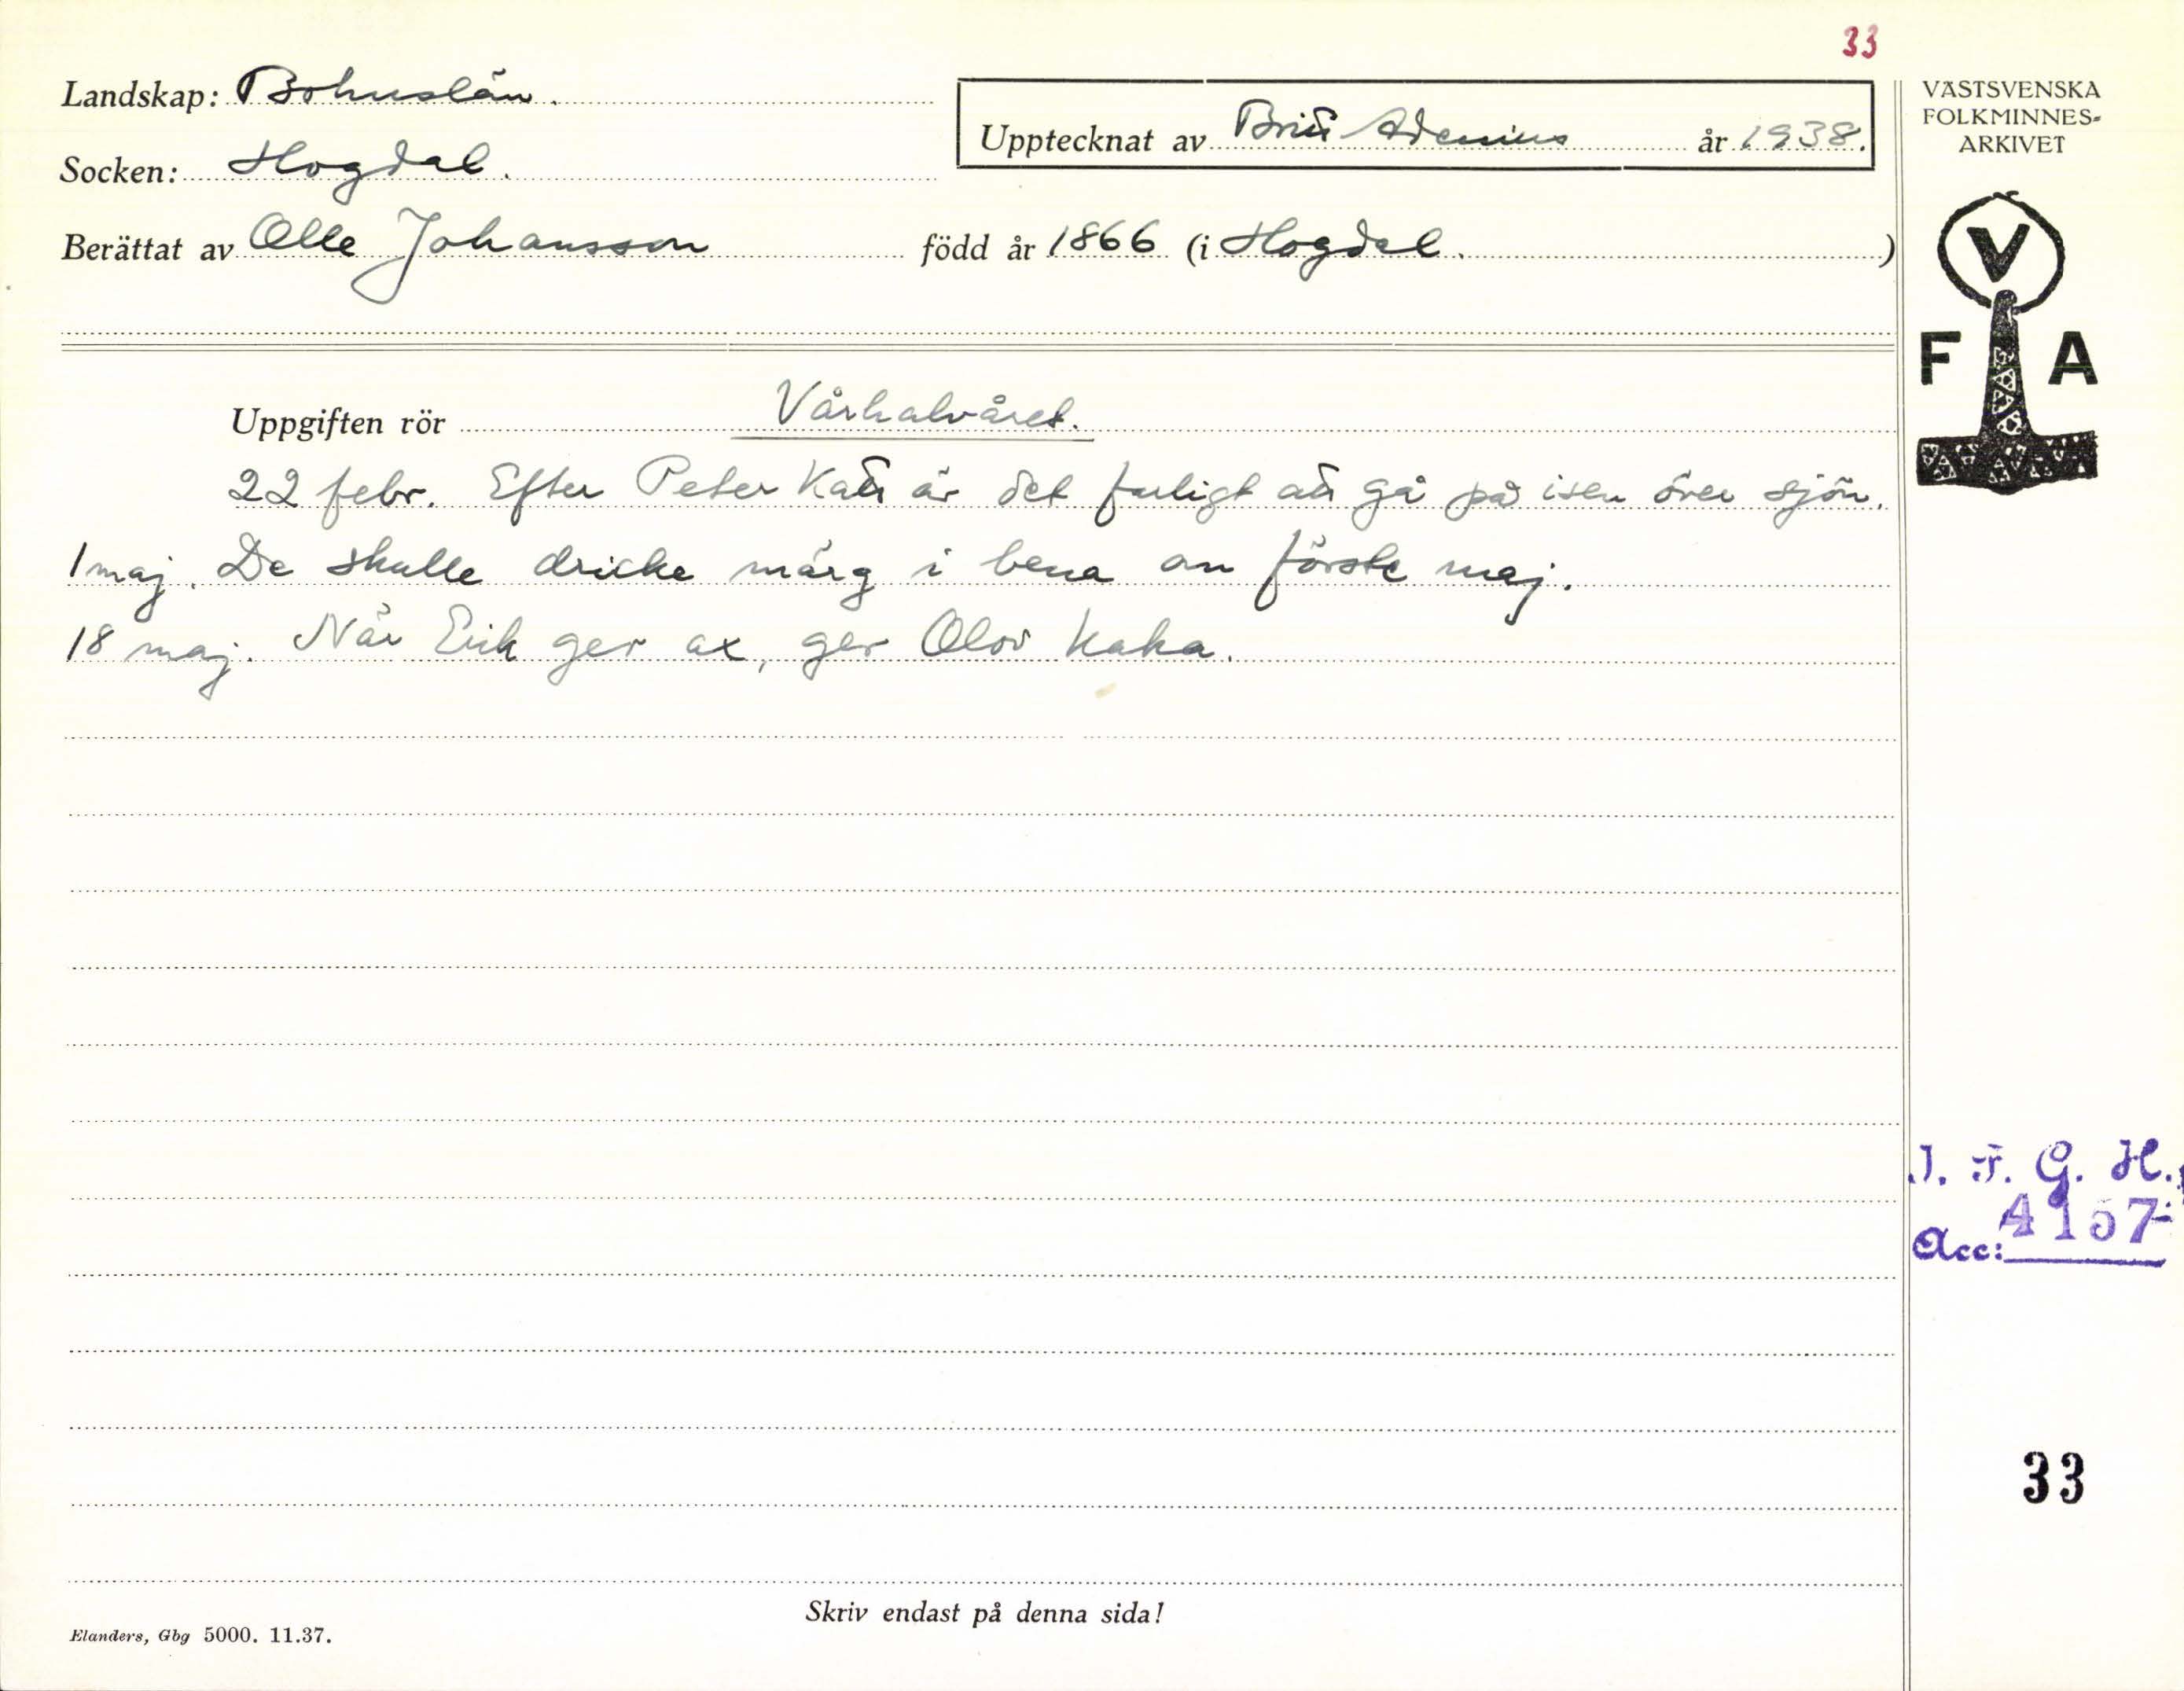 33
Landskap: Bohuslän.
Socken: Hogdal.
Upptecknat av Britt Adenius år 1938.
Berättat av Olle Johansson född år 1866 (i Hogdal.)
VÄSTSVENSKA
FOLKMINNES-
ARKIVET
V
F A
Uppgiften rör Vårhalvåret.
22 febr. Efter Peter Katt är det farligt att gå på isen över sjön.
1 maj. De skulle dricke märg i bena an förste maj.
18 maj. När Erik ger ax, ger Olov kaka.
I. F. G. H.
Acc: 4157
33
Skriv endast på denna sida!
Elanders, Gbg 5000. 11.37.